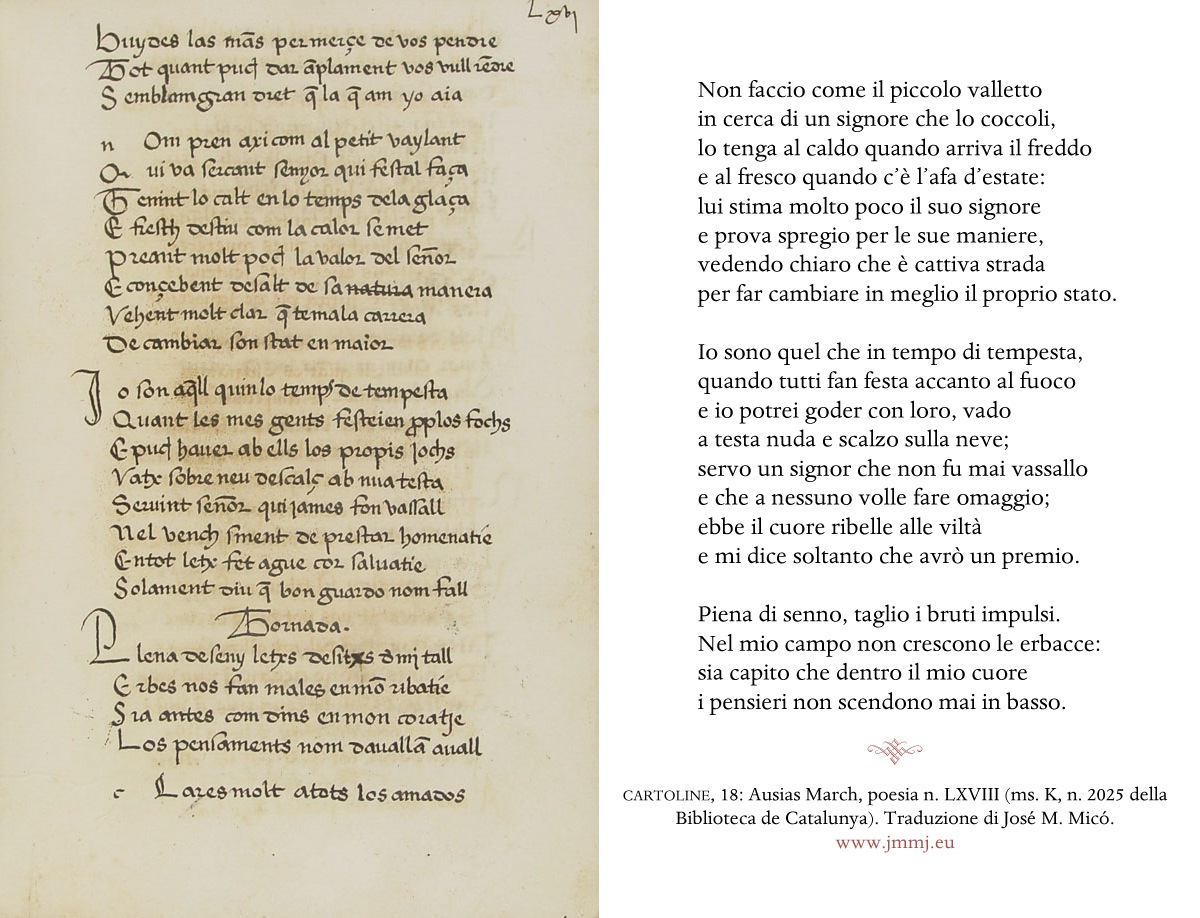 Lxvj
Buydes las mãs per merçe de vos pendre
Tot quant puch dar ãplament vos vull rẽdre
Semblam gran dret q̃ la q̃ am yo aia
n Om pren axi com al petit vaylant
Qui va sercant senyor qui festal faça
Tenint lo calt en lo temps dela glaça
E fresch destiu com la calor se met
Preant molt poch la valor del señor
E conçebent desalt de sa natura manera
Vehent molt clar q̃ te mala carrera
De cambiar son stat en maior
Jo son aq̃ll quin lo temps de tempesta
Quant les mes gents festeien ꝓplos fochs
E puch hauer ab ells los propis jochs
Vatx sobre neu descalç ab nua testa
Seruint señor qui james fon vassall
Nel vench sment de prestar homenatie
En tot letx fet ague cor saluatie
Solament diu q̃ bon guardo nom fall
Tornada.
Plena de seny letxs desitxs d mi tall
Erbes nos fan males en mõ ribatie
Sia antes com dins en mon coratje
Los pensaments nom dauallã auall
c Lares molt a tots los amados
Non faccio come il piccolo valletto
in cerca di un signore che lo coccoli,
lo tenga al caldo quando arriva il freddo
e al fresco quando c’è l’afa d’estate:
lui stima molto poco il suo signore
e prova spregio per le sue maniere,
vedendo chiaro che è cattiva strada
per far cambiare in meglio il proprio stato.
Io sono quel che in tempo di tempesta,
quando tutti fan festa accanto al fuoco
e io potrei goder con loro, vado
a testa nuda e scalzo sulla neve;
servo un signor che non fu mai vassallo
e che a nessuno volle fare omaggio;
ebbe il cuore ribelle alle viltà
e mi dice soltanto che avrò un premio.
Piena di senno, taglio i bruti impulsi.
Nel mio campo non crescono le erbacce:
sia capito che dentro il mio cuore
i pensieri non scendono mai in basso.
CARTOLINE, 18: Ausias March, poesia n. LXVIII (ms. K, n. 2025 della
Biblioteca de Catalunya). Traduzione di José M. Micó.
www.jmmj.eu